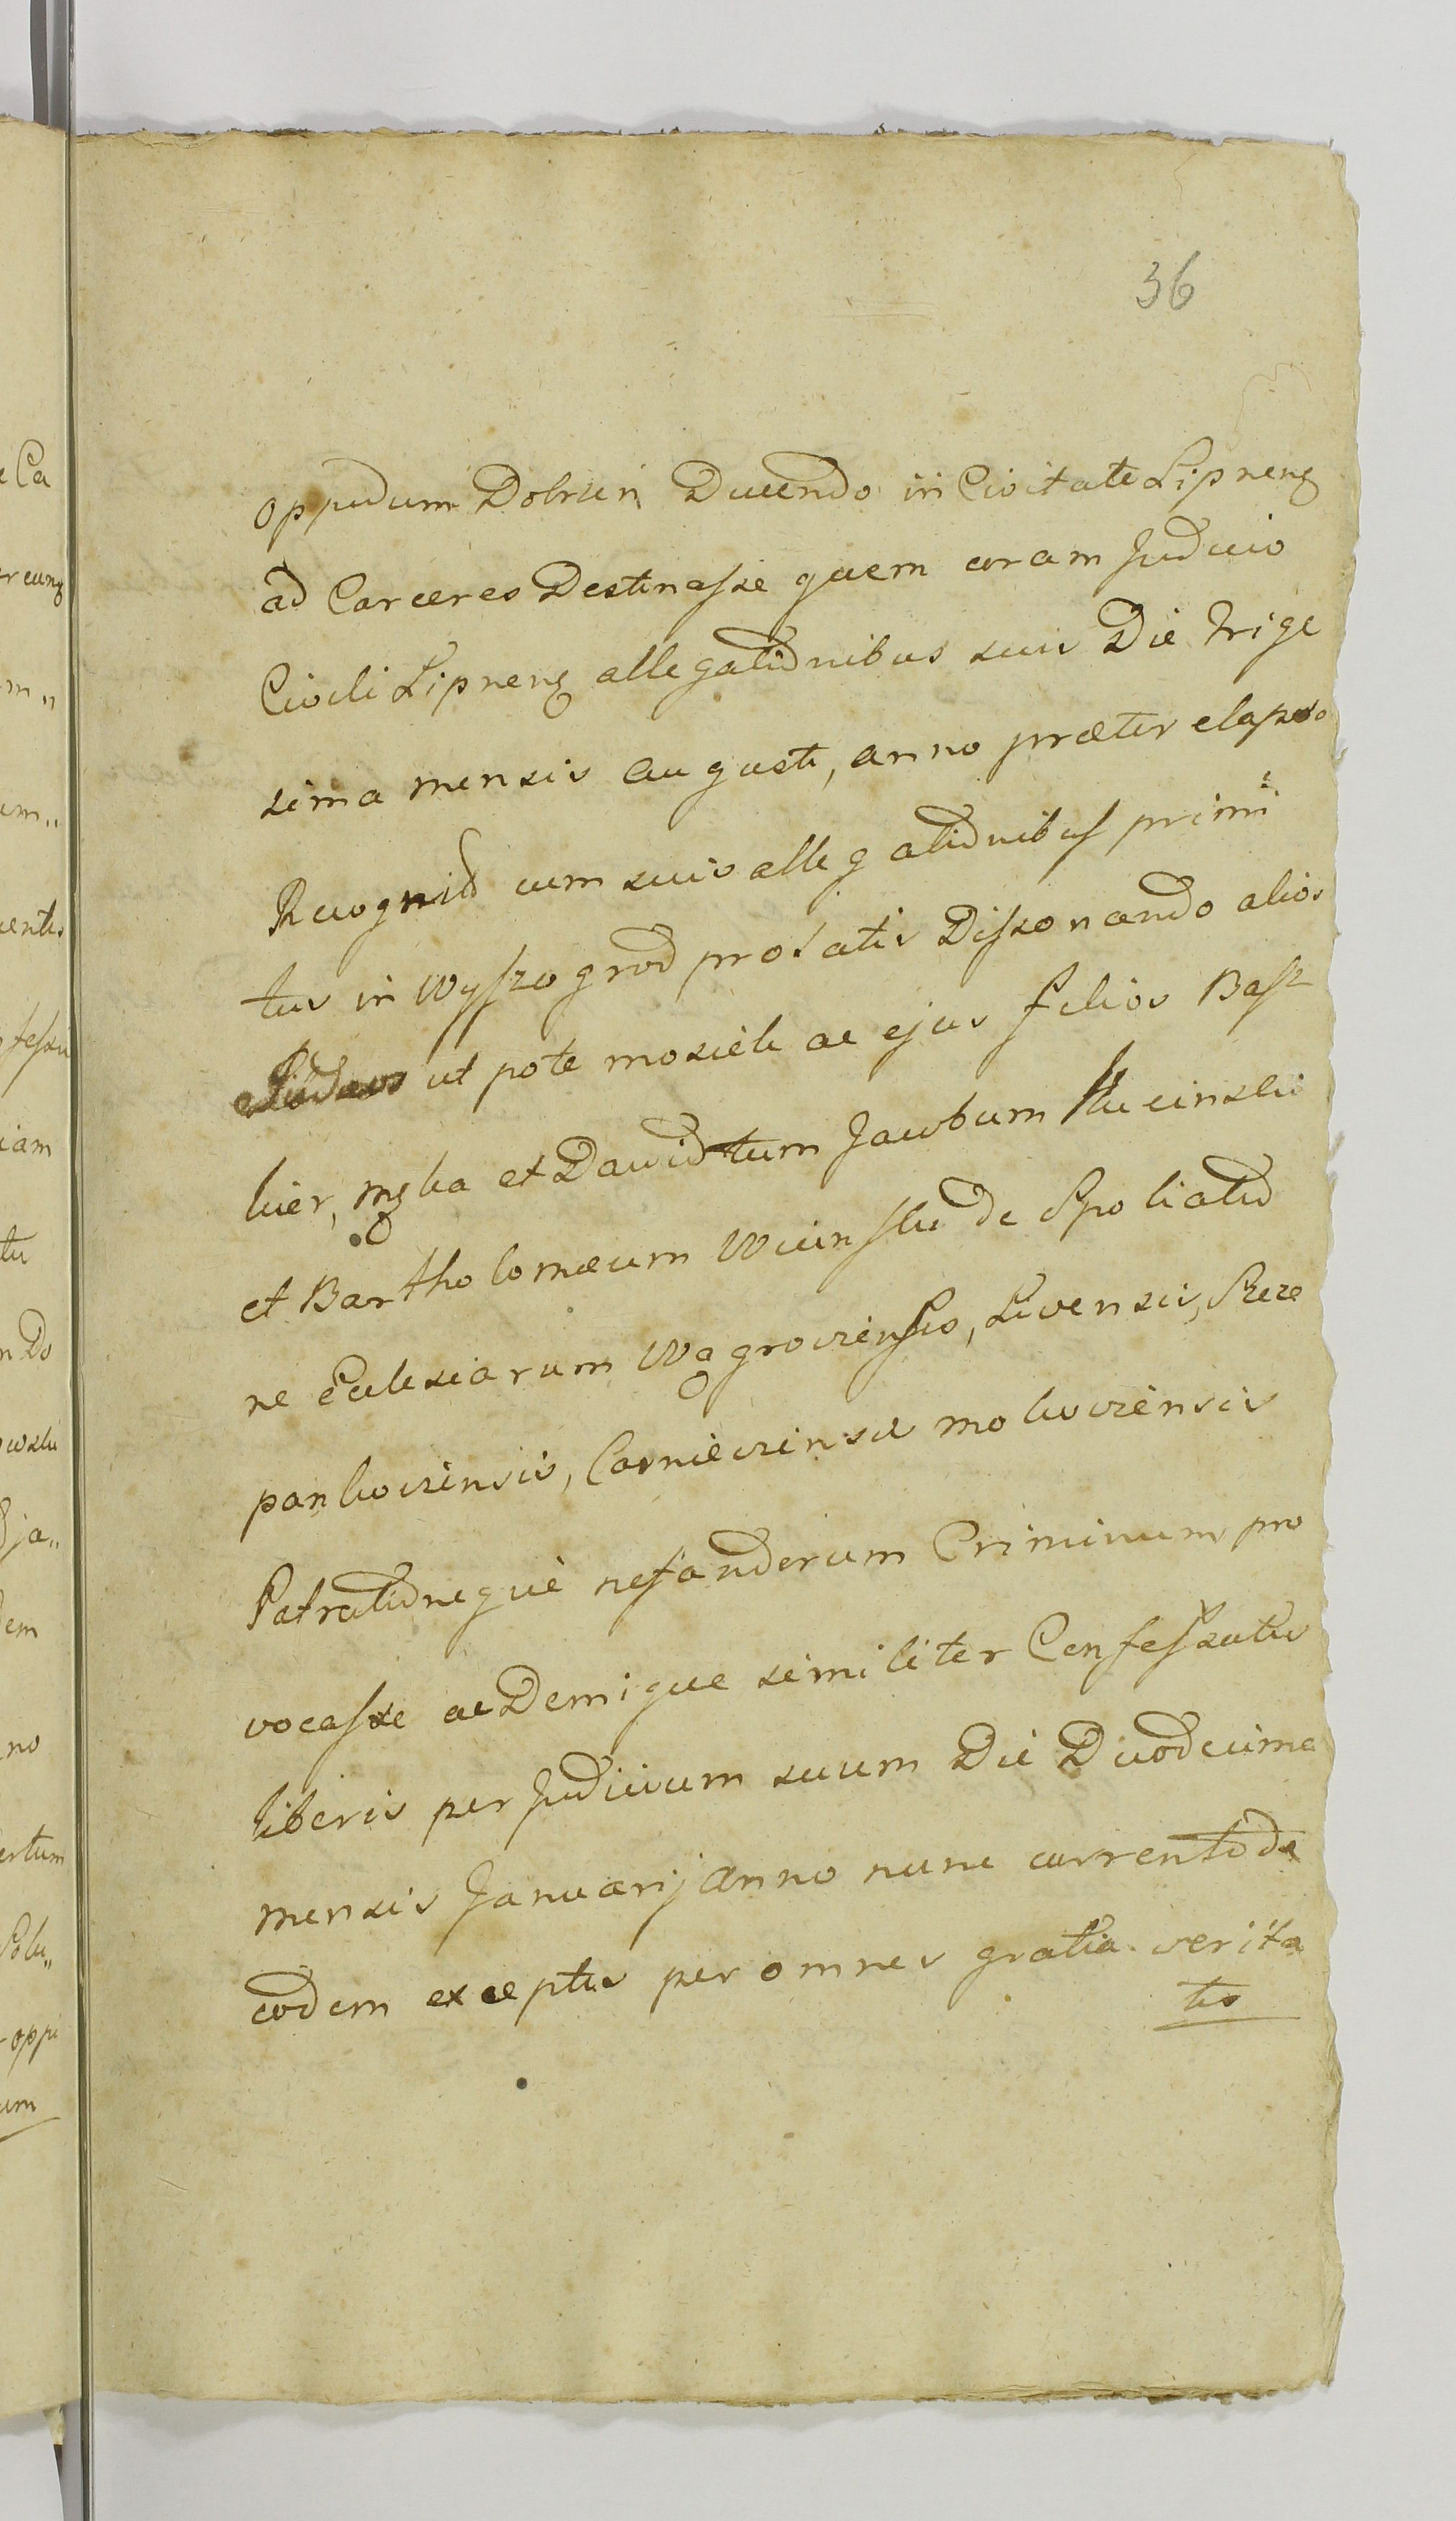 36
oppidum Dobrzin Ducendo in Civitate Lipneng
ad Carceres Destinasse quem coram Judicio
Civili Lipneng allegationibus suis Die Trige
sima mensis Augusti, anno præter elapso
Recognitio cum suis allegationibus primi
tus in Wyszogrod probatis Dissonando alios
Judæos ut pote mosiek ac ejus filios
et Dawid tum Jacobum
et Bartholomæum de Spoliatio
ne Ecclesiarum Wągroviensis, Livensis,
Patrationeque nefandorum Criminum pro
vocasse ac Demique similiter Confessatis
liberis per Judicium suum Die Duodecima
mensis Januarij Anno nunc currenti de
eodem exceptis per omnes gratia verita
tis